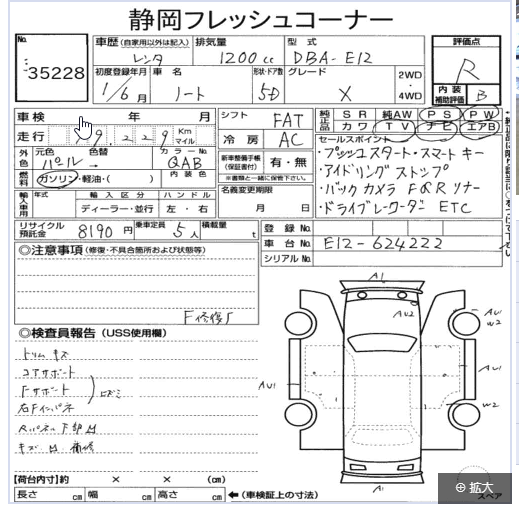 静岡フレッシュコーナー
No.
35228
車歴 (自家用以外は記入)
レンタ
排気量
1200 cc
型式
DBA-E12
評価点
R
内装
補助評価
B
初度登録年月
1/6月
車名
ノート
形状・ドア数
5D
グレード
X
2WD
・
4WD
車検 年 月
走行
9.229
Km
マイル
シフト
FAT
冷房
AC
純正品
SR 純AW PS PW
カワ TV ナビ エアB
外色
元色
パール
色替
→
カラーNo.
QAB
内装色
燃料
ガソリン・軽油・( )
新車整備手帳
(保証書付)
有・無
※書類と一緒に保管下さい。
セールスポイント
・プッシュスタート・スマートキー
・アイドリングストップ
・バックカメラ F&Rソナー
・ドライブレコーダー ETC
輸入車用
年式
輸入区分
ディーラー・並行
ハンドル
左・右
名義変更期限
月 日
リサイクル
預託金
8190 円
乗車定員
5人
積載量
t
登録No.
車台No.
E12-624222
シリアルNo.
◎注意事項 (修復・不具合箇所および状態等)
F修復ﾉ
◎検査員報告 (USS使用欄)
トリム キズ
コアサポート
Fサポート
右Fインパネ
Rパネル下部凹
キズ 凹 補修
A1
AU2
AU1
W2
AU1
AU1
W2
A1
【荷台内寸】約 × × (cm)
長さ cm 幅 cm 高さ cm ←(車検証上の寸法)
スペア
拡大